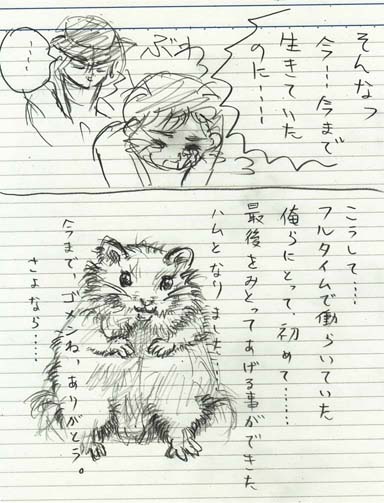 そんなっ
今ー今まで
生きていた
のに……
ぶわ
……
こうして……
フルタイムで働らいていた
俺らにとって、初めて……
最後をみとってあげる事ができた
ハムとなりました……
今まで、ゴメンね、ありがとう。
さよなら……